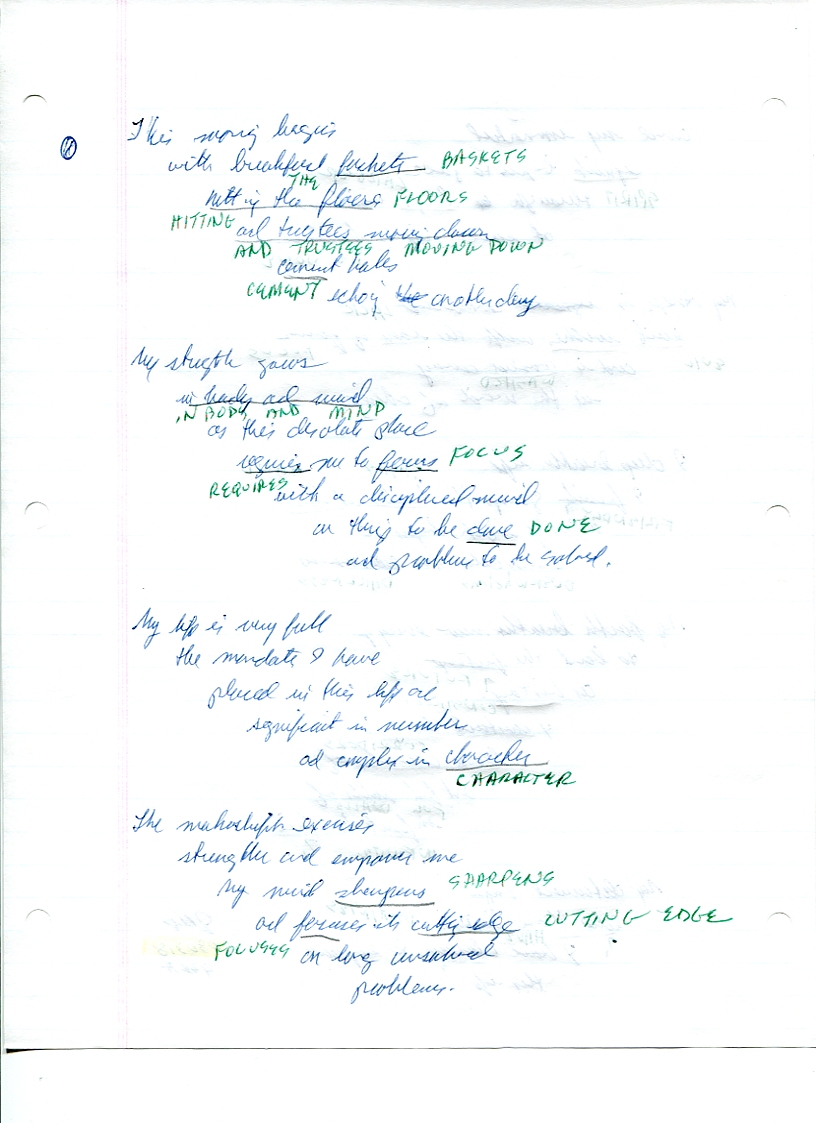 This morning begins
with breakfast baskets BASKETS
THE
hitting the floors FLOORS
HITTING
and trustees moving down
AND TRUSTEES MOVING DOWN
cement halls
CEMENT echoing the another day
My strength grows
in body and mind
IN BODY AND MIND
as this desolate place
requires me to focus FOCUS
REQUIRES
with a disciplined mind
on things to be done DONE
and problems to be solved.
My life is very full
the mandates I have
placed in this life are
significant in number
and complex in character
CHARACTER
The makeshift exercises
strengthen and empower me
My mind sharpens SHARPENS
and focuses its cutting edge CUTTING EDGE
FOCUSES on long unsolved
problems.